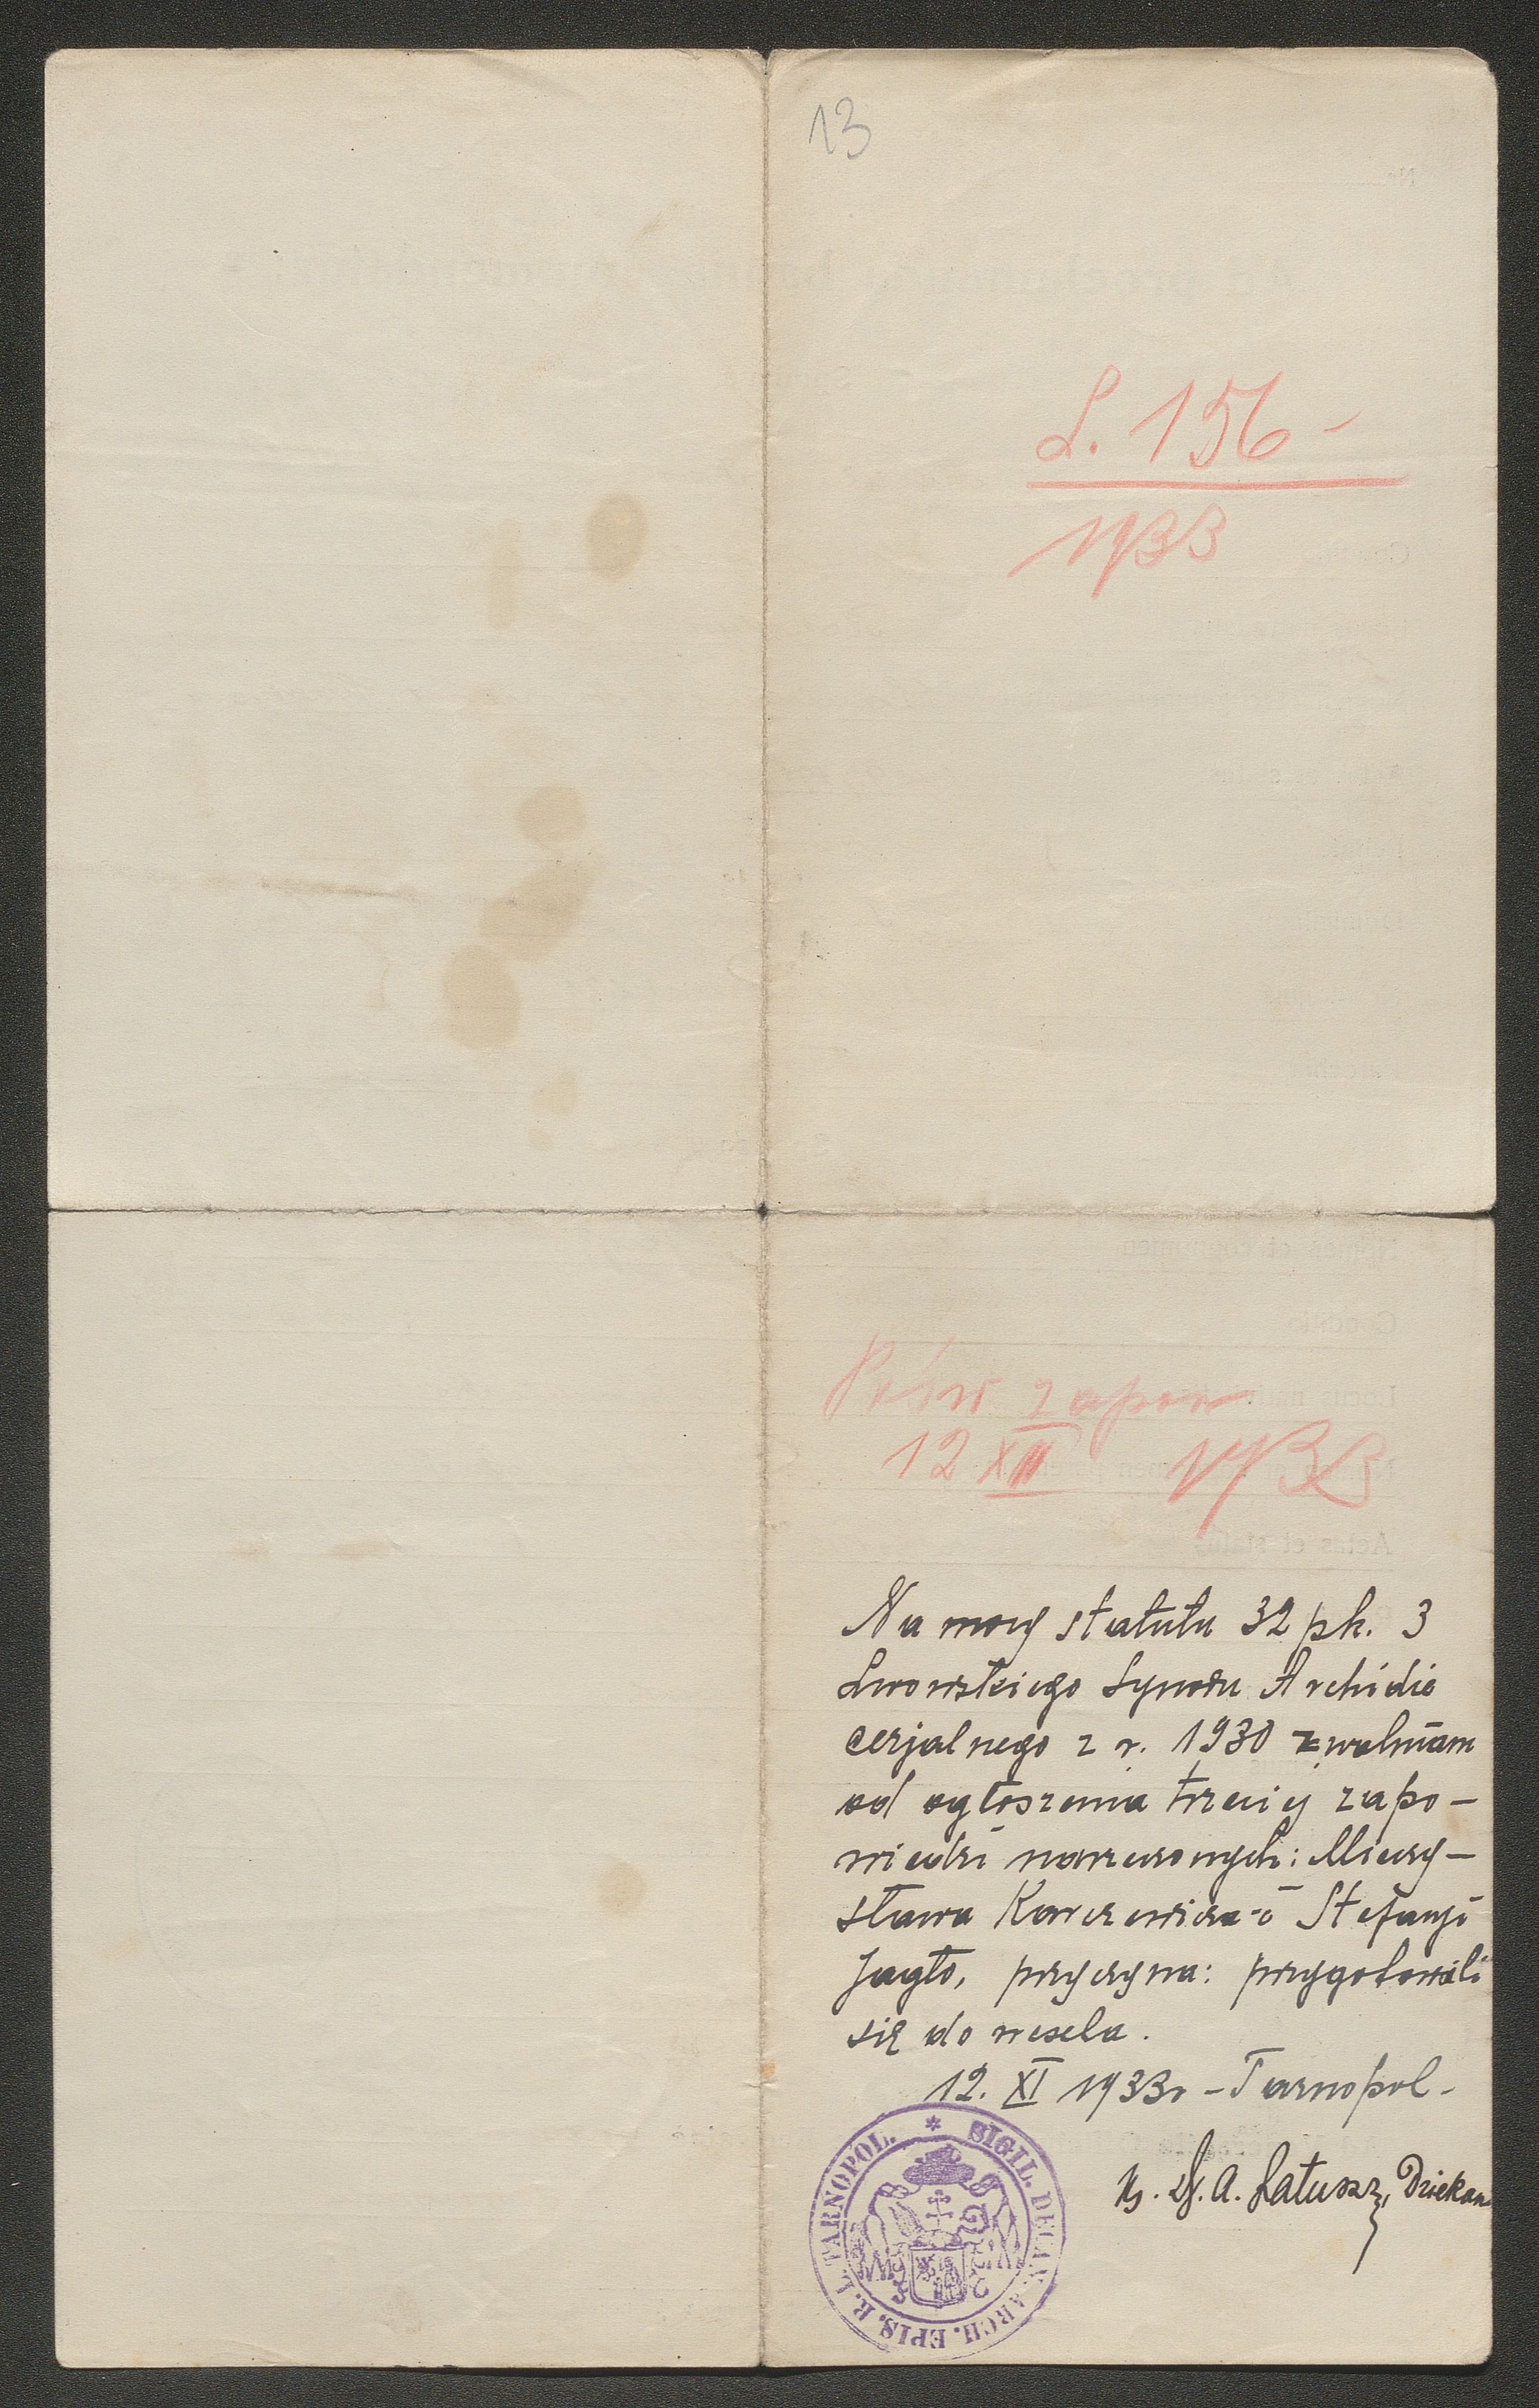 13
L. 156 -
1933
zapow
12 XII 1933
Na mocy statutu 32 pk. 3
Lwowskiego Synodu Archidie
cezjalnego z r. 1930 zwalniam
od ogłoszenia trzeciej zapo-
wiedzi narzeczonych: Mieczy-
sława Kawczewicza i Stefanji
Jagło, przyczyna: przygotowali
się do wesela.
12. XI 1933r - Tarnopol -
Ks. Dr. A. Łatuszz, Dziekan
* SIGIL. DECAN. ARCH. EPIS. R. L. TARNOPOL.